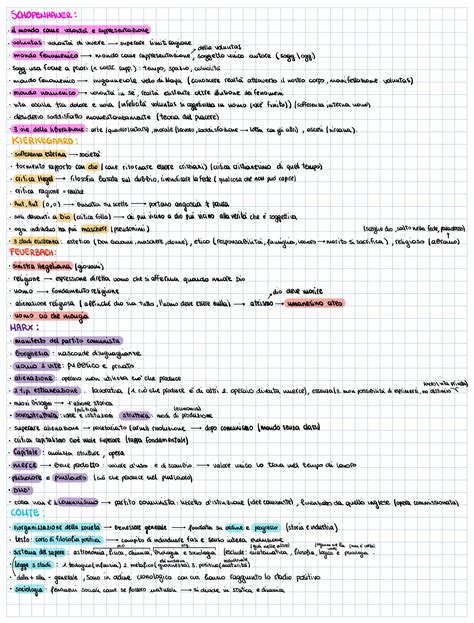 SCHOPENHAUER:
· il mondo come volontà e rappresentazione
· voluntas volontà di vivere → superare limiti ragione
della voluntas
· mondo fenomenico → mondo come rappresentazione, soggetto unico autore (sogg/ogg)
· sogg usa forme a priori (k cost. supp): tempo, spazio, causalità
· mondo fenomenico → ingannevole velo di Maya (conoscere realtà attraverso il nostro corpo, manifestazione voluntas)
· mondo noumenico → volontà in sé, realtà esistente oltre illusione dei fenomeni
· vita oscilla tra dolore e noia (infelicità voluntas si oggettivizza in uomo (esse finito)) (sofferenza interna uomo)
· desiderio soddisfatto momentaneamente (teoria del piacere)
· 3 vie della liberazione: arte, morale, ascesi (nirvana).
KIERKEGAARD:
· sofferenza esterna → società
· tormentato rapporto con dio (come ritornare essere cristiani) (critica cristianesimo di quel tempo)
· critica Hegel → filosofia basata sul dubbio, rivendicare la fede (qualcosa che non può capire)
· critica ragione = realtà
· Aut, Aut (o, o) → basata su scelte → portano angoscia e paura
· soli davanti a Dio (critica folla) → chi più vicino a dio più vicino alla verità che è soggettiva
· ogni individuo ha più maschere (pseudonimi)
(scelgo dio, salto nella fede, paradosso)
· 3 stadi esistenza: estetico (Don Giovanni, maschere, donne), etico (responsabilità, famiglia, lavoro → marito si sacrifica), religioso (Abramo)
FEUERBACH:
· sinistra Hegeliana (giovani)
· religione → espressione diretta uomo che si afferma quando uccide Dio
· uomo → fondamento religione
dio deve morire
· alienazione religiosa (affinché dio sia tutto, l'uomo deve essere nulla) → ateismo → umanesimo ateo
· uomo ciò che mangia
MARX:
· manifesto del partito comunista
· Borghesia: nasconde disuguaglianze
· uomo 2 vite: pubblico e privato
· alienazione: operaio non utilizza ciò che produce
· 2 tipi estraneazione: lavorativa (1. ciò che produce è di altri 2. operaio diventa merce), essenziale
· nuovi bisogni → 1 azione storica
(politica) (economia)
· sovrastruttura: idee e istituzioni struttura: modi di produzione
· superare alienazione → proletariato (armi) rivoluzione → dopo comunismo (mondo senza classi)
· critica capitalismo così vuole superare (tappa fondamentale)
· Capitale: analizza strutture, opera
· merce → bene prodotto: valore d'uso e di scambio → valore unico lo trova nel tempo di lavoro
· plusvalore e pluslavoro (ciò che produce nel pluslavoro)
· cosa non è il comunismo → partito comunista: libretto d'istruzione (idee comuniste), finanziato da quello inglese (opera commissionata)
COMTE:
· riorganizzazione della società → benessere generale → fondata su ordine e progresso (storia e industria)
· testo: corso di filosofia positiva → compito di individuare fasi e senso intera evoluzione
· sistema del sapere: astronomia, fisica, chimica, biologia e sociologia (esclude: matematica, filosofia, logica e psicologia
· (legge 3 stadi: 1. teologico (infanzia) 2. metafisico (giovinezza) 3. positivo (maturità)
· dalla + alla - generale, sono in ordine cronologico con cui hanno raggiunto lo stadio positivo
· sociologia: fenomeni sociali come se fossero naturali → si divide in statica e dinamica